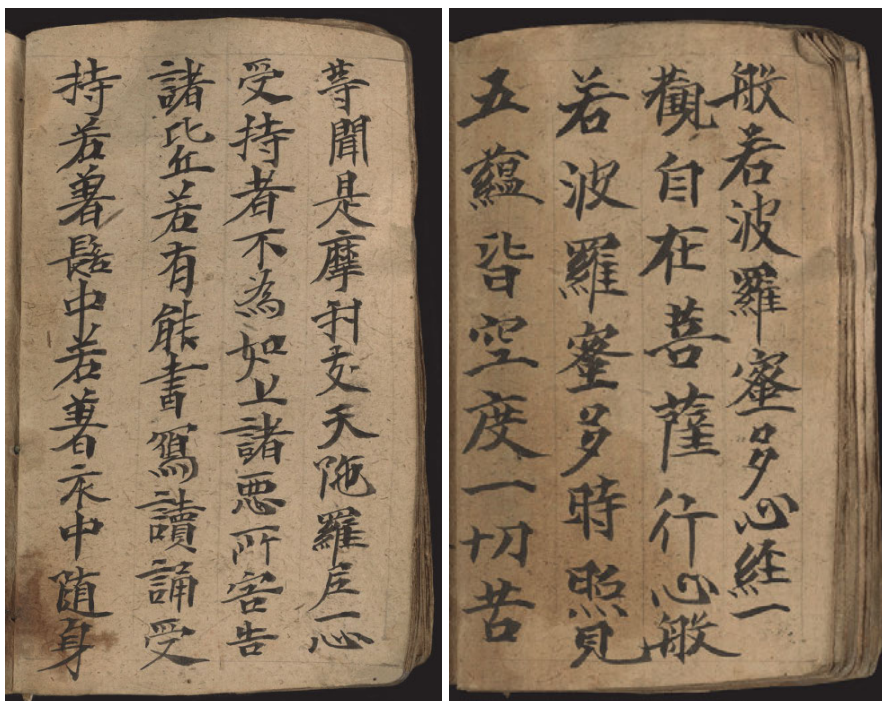 般若波羅蜜多心経一
觀自在菩薩行心般
若波羅蜜多時照見
五蘊皆空度一切苦
等聞是摩利支天陁羅尼一心
受持者不為如上諸悪所害告
諸比丘若有能書寫讀誦受
持若著髻中若著衣中随身